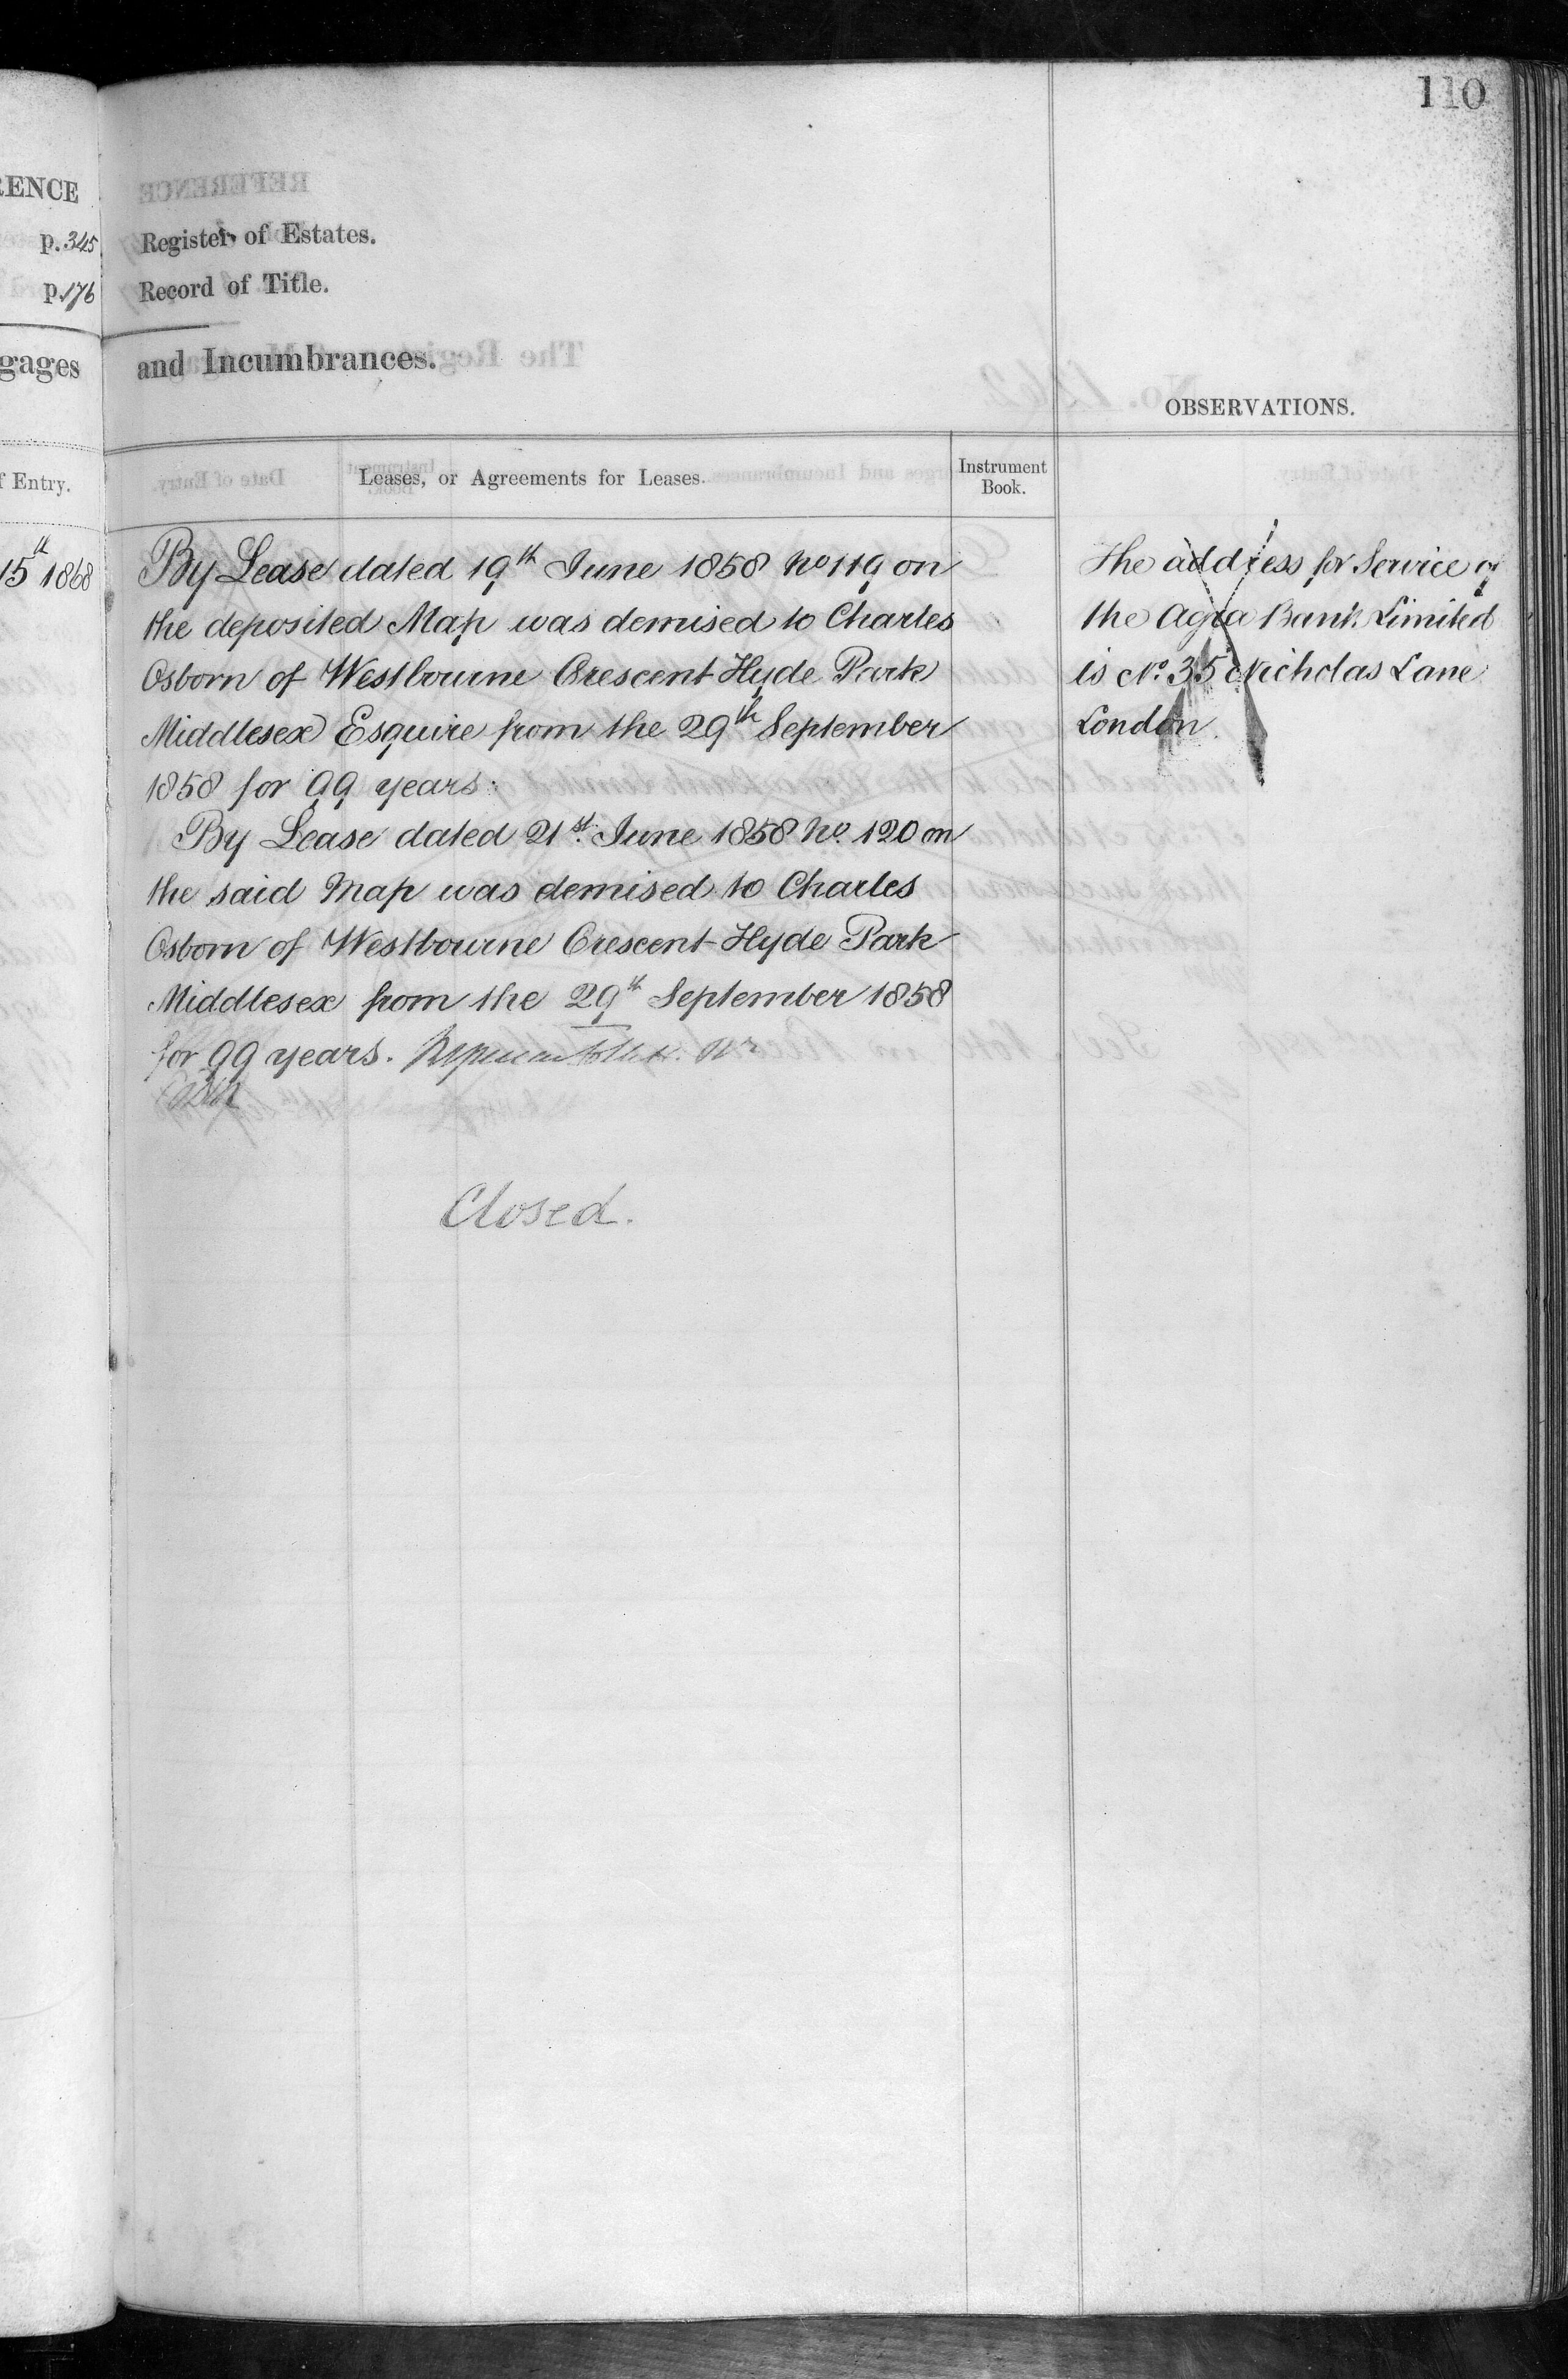 110
RENCE
p. 345 Register of Estates.
p. 176 Record of Title.
gages and Incumbrances.
OBSERVATIONS.
f Entry.
Leases, or Agreements for Leases.
Instrument
Book.
15th 1868
By Lease dated 19th June 1858 No 119 on
the deposited Map was demised to Charles
Osborn of Westbourne Crescent Hyde Park
Middlesex Esquire from the 29th September
1858 for 99 years.
By Lease dated 21st June 1858 No. 120 on
the said Map was demised to Charles
Osborn of Westbourne Crescent Hyde Park
Middlesex from the 29th September 1858
for 99 years.
Closed.
The address for Service of
the Agra Bank Limited
is No. 35 Nicholas Lane
London.